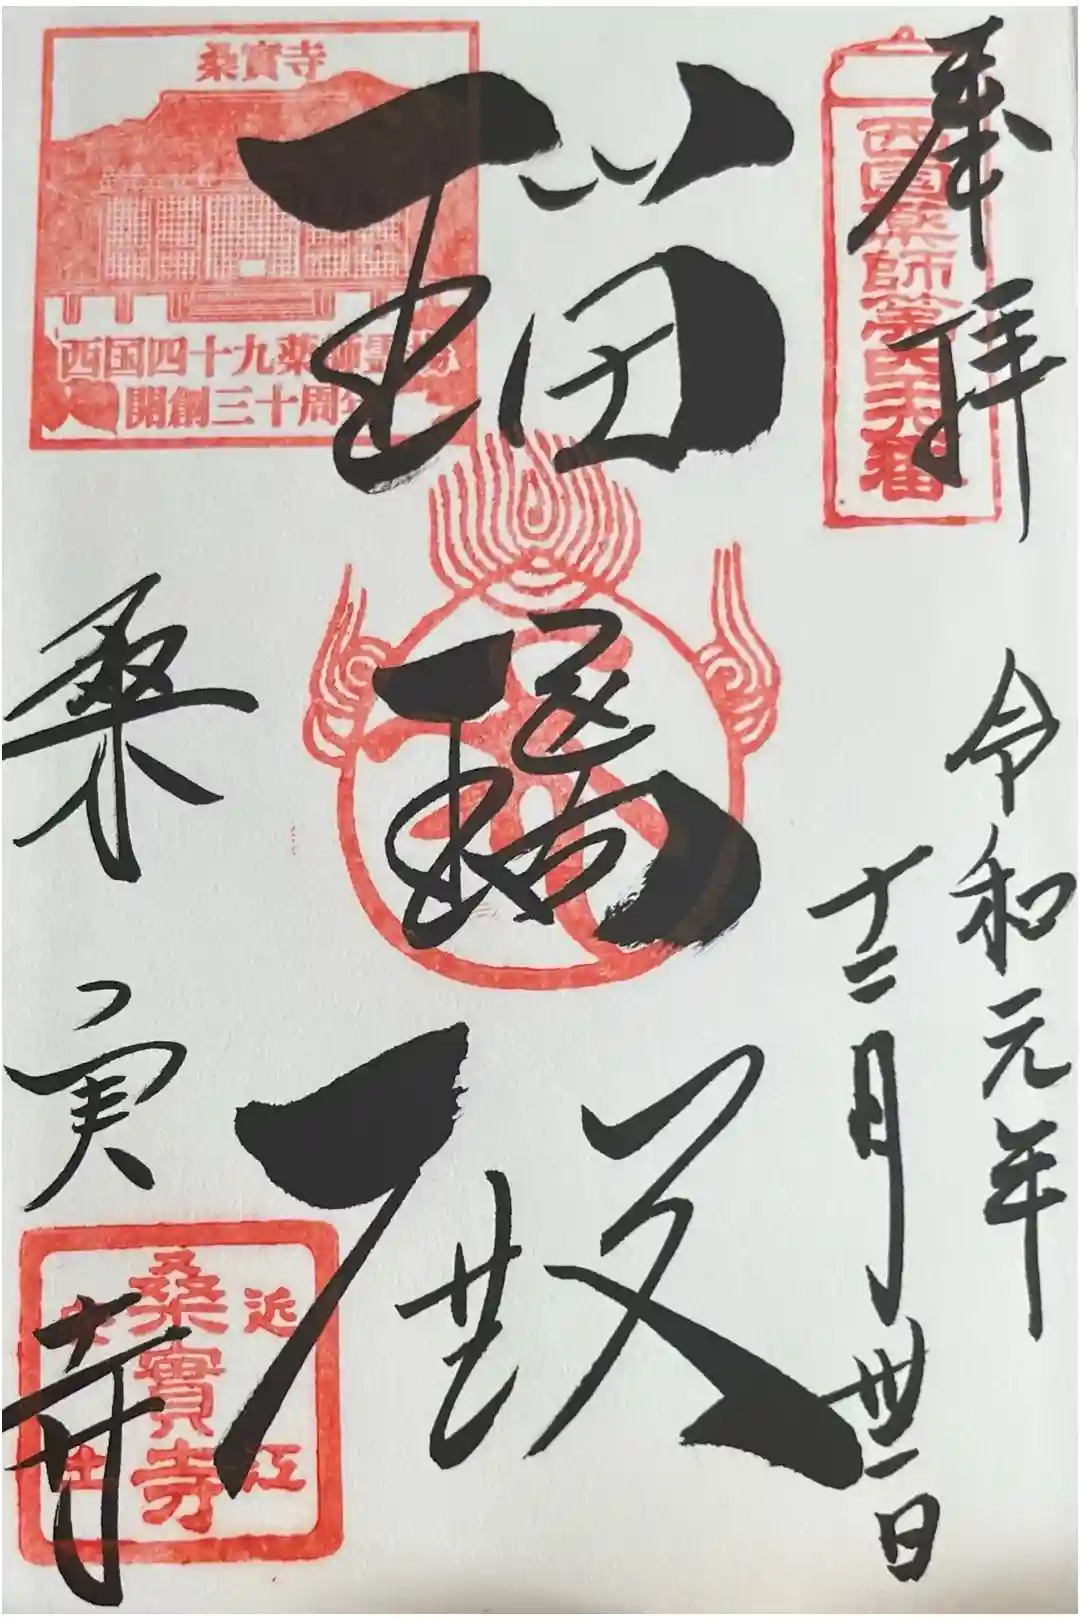 奉拝
西国薬師第四十六番
令和元年
十二月卅一日
瑠璃殿
桑實寺
西国四十九薬師霊場
開創三十周年
桑実寺
近江
桑實寺
安土